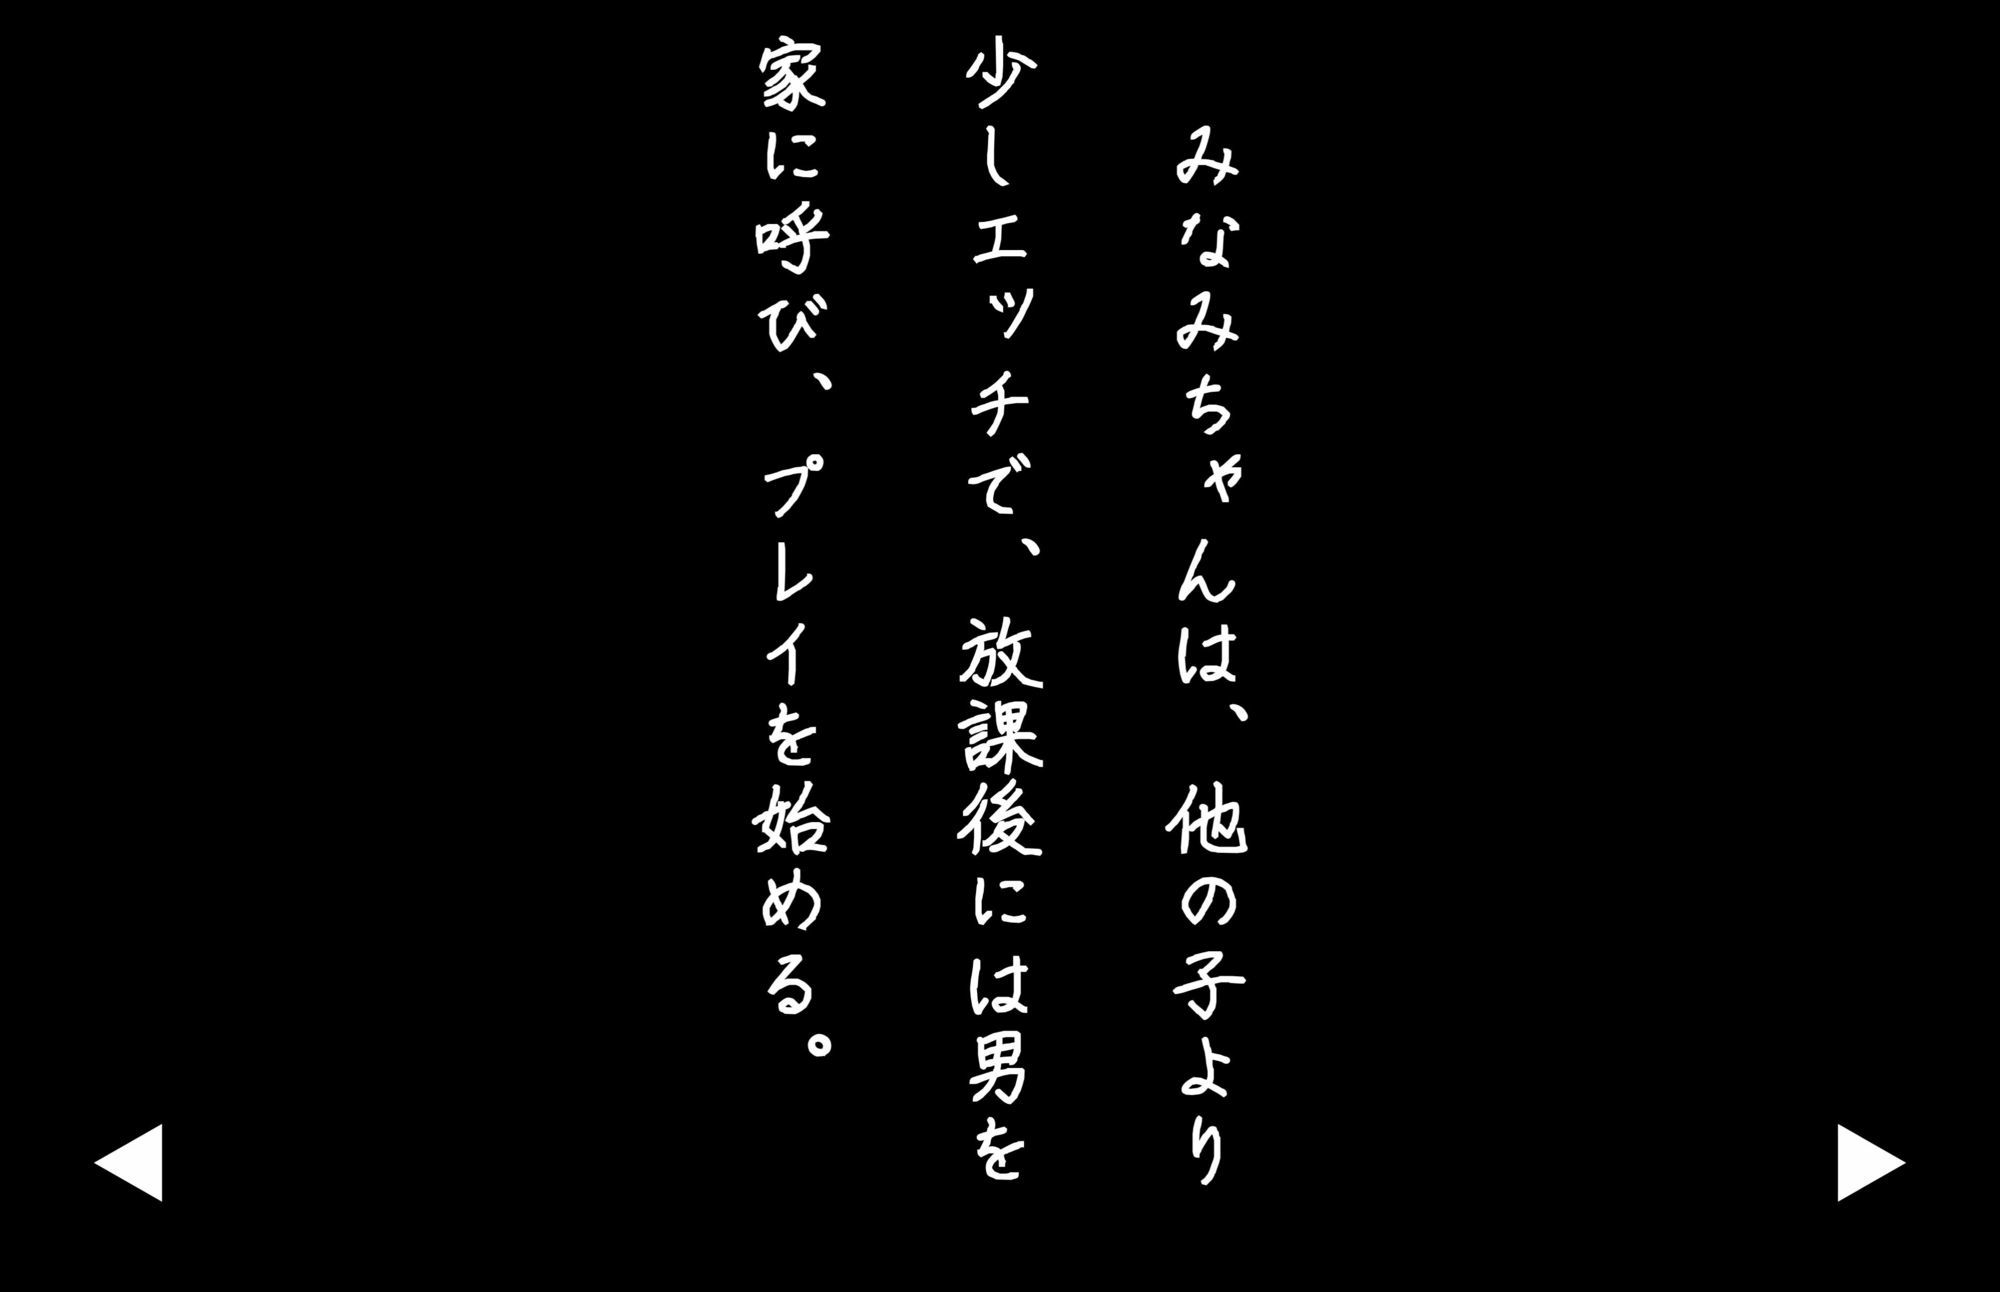 みなみちゃんは、他の子より
少しエッチで、放課後には男を
家に呼び、プレイを始める。